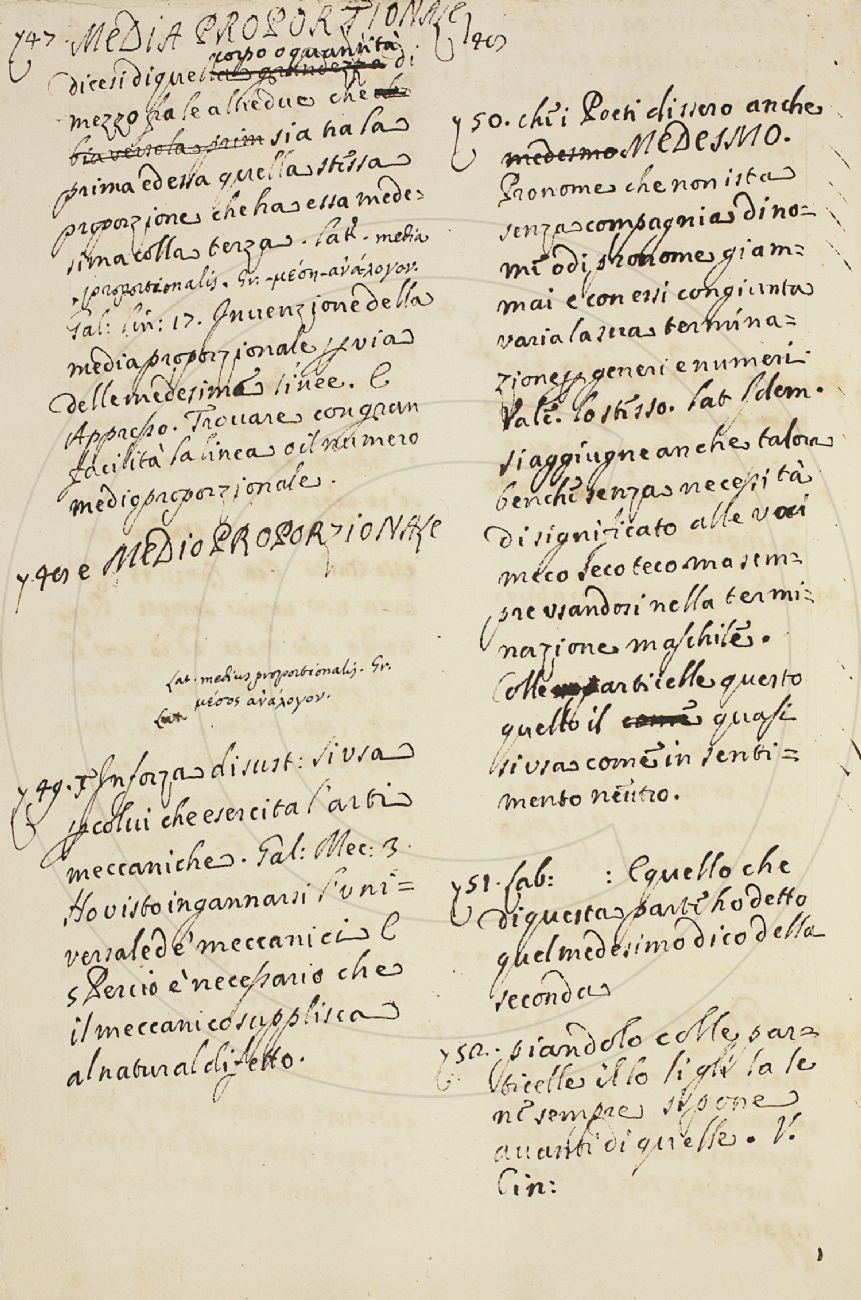 747. MEDIA PROPORZIONALE
corpo o quantità
dicesi di quella grandezza di
mezzo fra le altre due che ab
bia verso la prim sia tra la
prima ed essa quella stessa
proporzione che ha essa mede-
sima colla terza. Lat. media
proportionalis. Gr. μέση ανάλογον.
Gal: Lin: 17. Invenzione della
media proporzionale p via
delle medesime linee. E
Appresso. Trovare con gran
facilità la linea o il numero
medio proporzionale.
748 e MEDIO PROPORZIONALE
Lat. medius proportionalis. Gr.
μέσος ανάλογον.
Lat.
749. In forza di sust: si usa
p colui che esercita l'arti
meccaniche. Gal: Mec: 3.
Ho visto ingannarsi l'uni=
versale de' meccanici E
5 Percio è necessario che
il meccanico supplisca
al natural difetto.
748
750. che i Poeti dissero anche
medesmo MEDESMO.
Pronome che non ista
senza compagnia di no=
me o di pronome giam=
mai e con essi congiunta
varia la sua termina=
zione p generi e numeri
Vale. lo stesso. Lat Idem.
si aggiugne anche talora
benche senza necessità
di significato alle voci
meco seco teco ma sem=
pre usandosi nella termi=
nazione maschile.
Colle particelle questo
quello il come quasi
si usa come in senti=
mento neutro.
751. Sab: : E quello che
di questa parte ho detto
quel medesimo dico della
seconda
752. piandolo colle par=
ticelle il lo li gli la le
ne sempre si pone
avanti di quelle. V.
Cin: